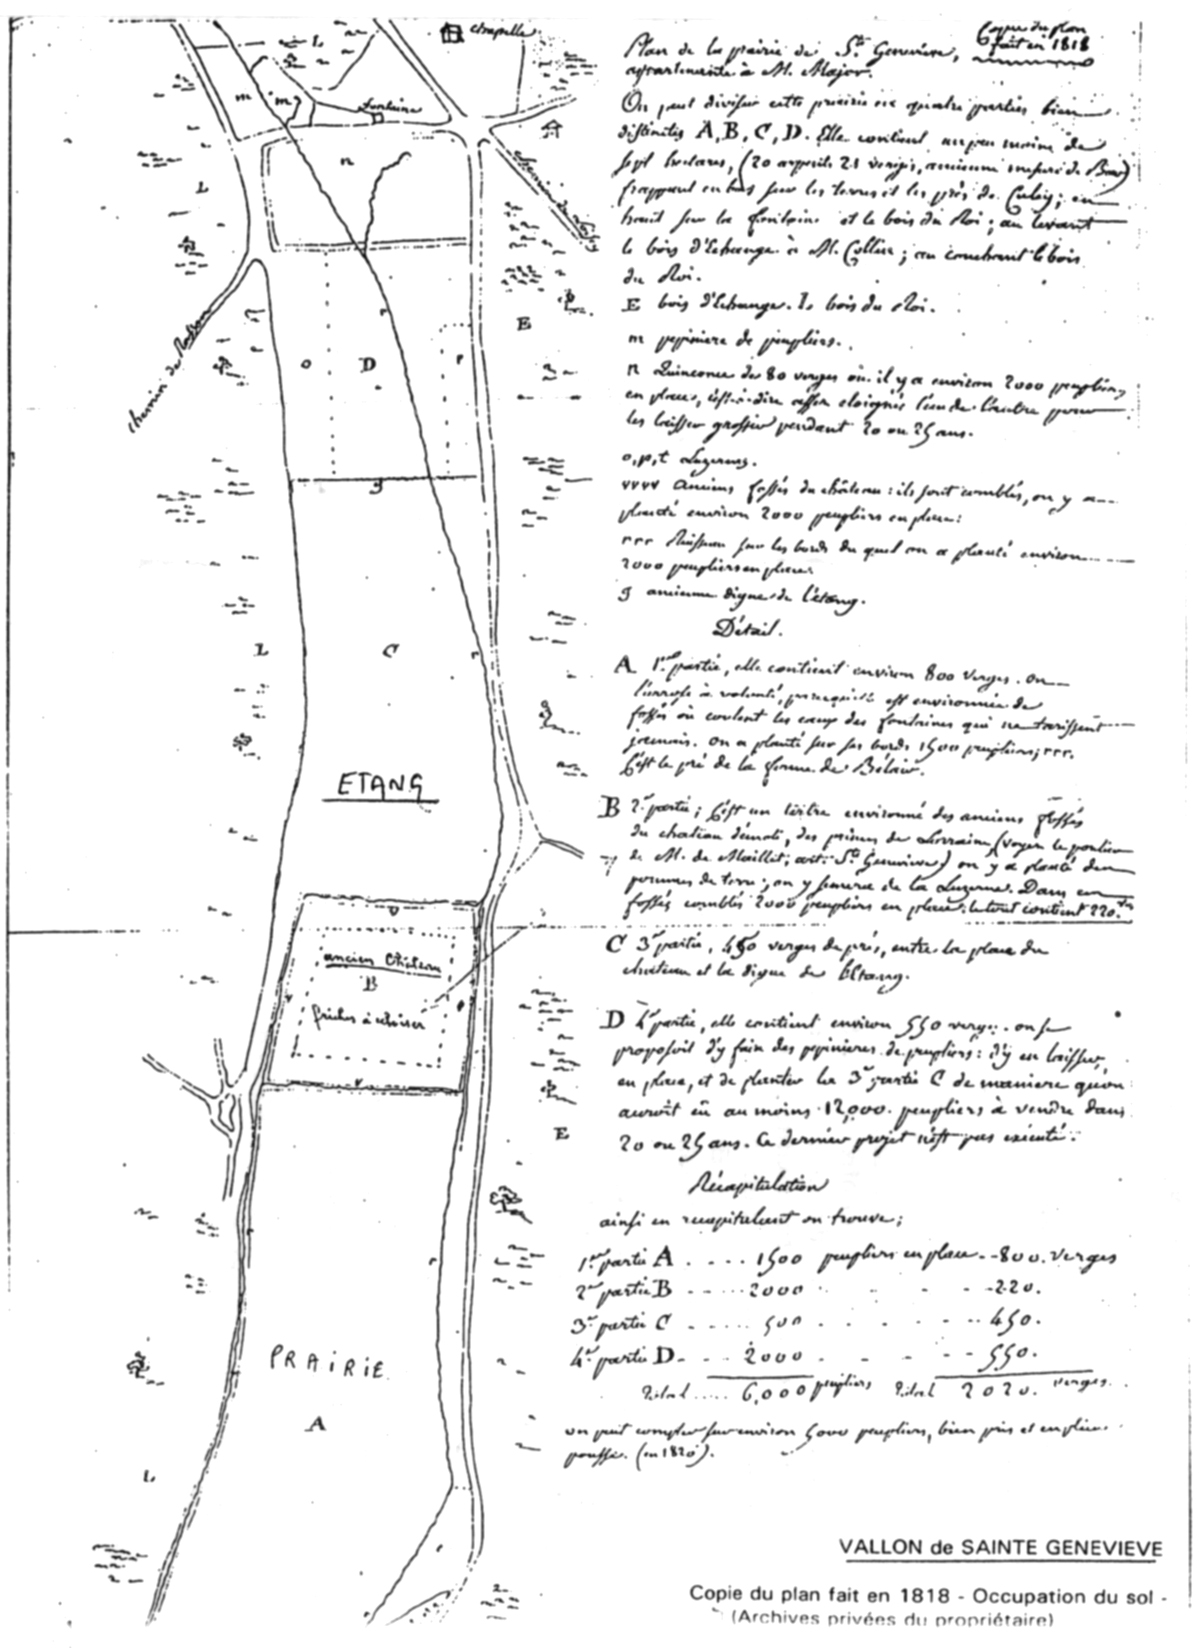 Copie du plan
fait en 1818
Plan de la prairie de Ste Geneviève,
appartenante à M. Major.
On peut diviser cette prairie en quatre parties bien
distinctes A, B, C, D. Elle contient un peu moins de
sept hectares, (20 arpents 21 verges, ancienne mesure de Bar)
frappant en bas sur les terres et les près de Culey; en
haut sur la fontaine et le bois du Roi; au levant
le bois d'Echange à M. Collin; au couchant le bois
du Roi.
E bois d'Echange. L bois du Roi.
m pepiniere de peupliers.
n Quinconce de 80 verges où il y a environ 2000 peupliers
en place, c'est-à-dire assez eloignés l'un de l'autre pour
les laisser grossir pendant 20 ou 25 ans.
o, p, t Luzernes.
vvvv anciens fossés du château : ils sont comblés, on y a
planté environ 2000 peupliers en place:
rrr Ruisseau sur les bords du quel on a planté environ
2000 peupliers en place.
g ancienne digue de l'étang.
Détail.
A 1re partie, elle contient environ 800 verges. on
l'arrose à volonté, parcequ'elle est environnée de
fossés où coulent les eaux des fontaines qui ne tarissent
jamais. on a planté sur ses bords 1500 peupliers; rrr.
C'est le pré de la ferme de Bélair.
B 2e partie; c'est un tertre environné des anciens fossés
du chateau démoli, des princes de Lorraine (voyez le
de M. de Maillet; art. Ste Geneviève) on y a planté des
pommes de terre; on y semera de la Luzerne. Dans ces
fossés comblés 2000 peupliers en place. le tout contient 220 ves
C 3e partie, 450 verges de prés, entre la place du
château et la digue de l'Etang.
D 4e partie, elle contient environ 550 verges. on se
proposoit d'y faire des pepinieres de peupliers: d'y en laisser
en place, et de planter la 3e partie C de maniere qu'on
auroit eû au moins 12,000 peupliers à vendre dans
20 ou 25 ans. Ce dernier projet n'est pas exécuté.
Récapitulation
ainsi en recapitulant on trouve;
1re partie A .... 1500 peupliers en place -- 800. verges
2e partie B ..... 2000 . - - - 220.
3e partie C ...... 500 . . - - .. 450.
4e partie D - .. 2000 . - - - 550.
Total ..... 6,000 peupliers Total 2020. verges.
on peut compter sur environ 5000 peupliers, bien pris et en pleine
pousse. (en 1820).
chapelle
L
m
m
fontaine
n
L
chemin de
chemin de
E
o
D
r
r
g
L
C
r
ETANG
v
ancien Château
B
friches à
v
v
E
r
r
PRAIRIE
A
L
r
VALLON de SAINTE GENEVIEVE
Copie du plan fait en 1818 - Occupation du sol -
(Archives privées du propriétaire)